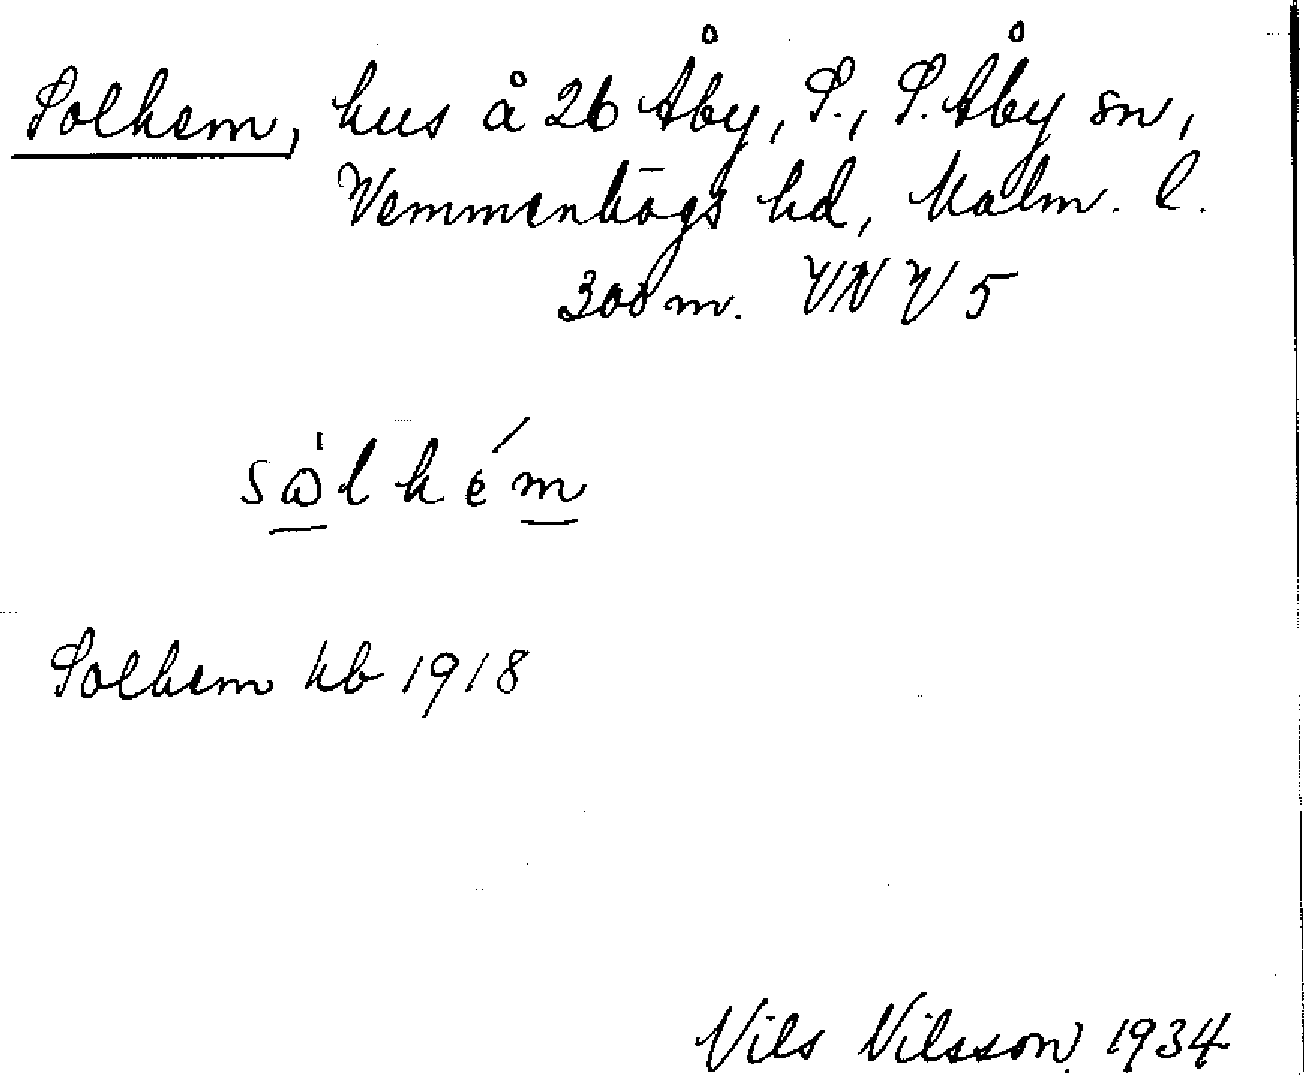 Solhem, hus å 26 Åby, S., S. Åby sn,
Vemmenhögs hd, Malm. l.
300 m. VNV 5
sωlhém
Solhem kb 1918
Nils Nilsson 1934